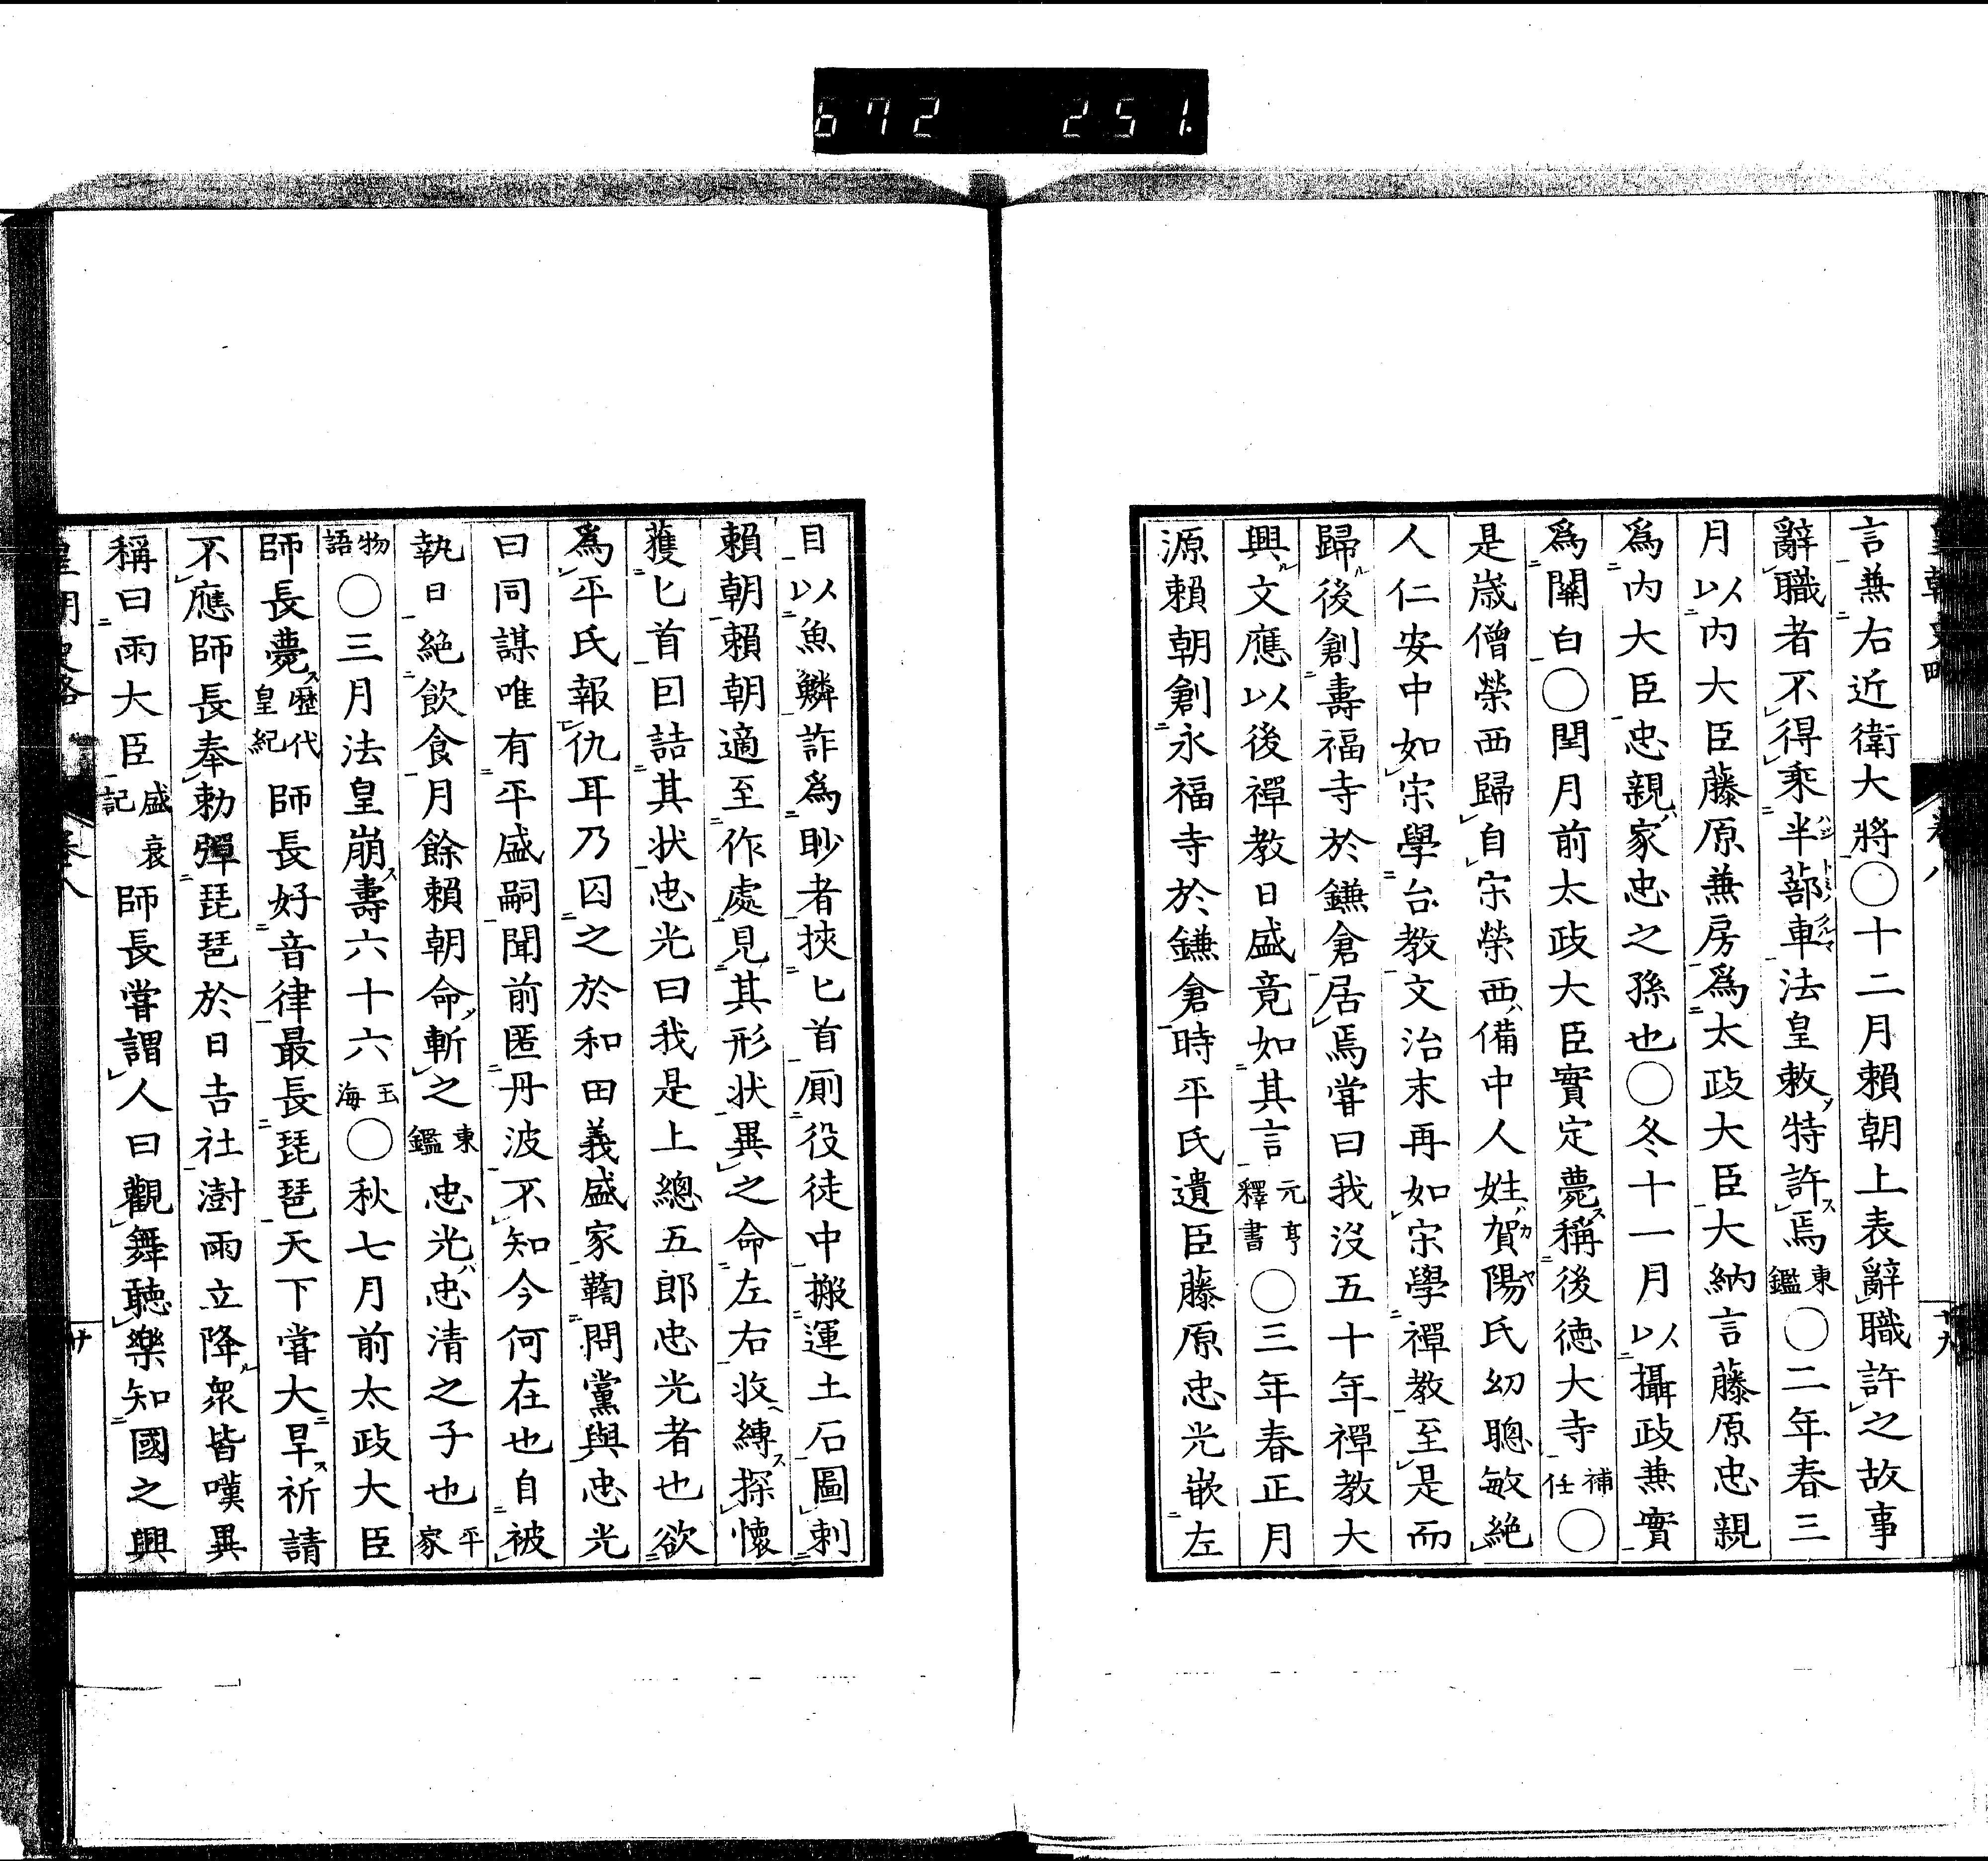 672 251.
皇朝史略 卷八 十九
言兼右近衛大將○十二月賴朝上表辭職許之故事
辭職者不得乘半蔀車法皇敕特許焉東鑑○二年春三
月以内大臣藤原兼房爲太政大臣大納言藤原忠親
爲内大臣忠親家忠之孫也○冬十一月以攝政兼實
爲關白○閏月前太政大臣實定薨稱後德大寺補任○
是歲僧榮西歸自宋榮西備中人姓賀陽氏幼聰敏絶
人仁安中如宋學台教文治末再如宋學禪教至是而
歸後創壽福寺於鎌倉居焉嘗曰我沒五十年禪教大
興文應以後禪教日盛竟如其言元亨釋書○三年春正月
源賴朝創永福寺於鎌倉時平氏遺臣藤原忠光嵌左
目以魚鱗詐爲眇者挾匕首厠役徒中搬運土石圖刺
賴朝賴朝適至作處見其形狀異之命左右收縛探懷
獲匕首囙詰其状忠光曰我是上總五郎忠光者也欲
爲平氏報仇耳乃囚之於和田義盛家鞫問黨與忠光
曰同謀唯有平盛嗣聞前匿丹波不知今何在也自被
執日絶飲食月餘賴朝命斬之東鑑忠光忠清之子也平家
物語○三月法皇崩壽六十六玉海○秋七月前太政大臣
師長薨歷代皇紀師長好音律最長琵琶天下嘗大旱祈請
不應師長奉勅彈琵琶於日吉社澍雨立降衆皆嘆異
稱曰雨大臣盛衰記師長嘗謂人曰觀舞聽樂知國之興
皇朝史略 卷八 廿